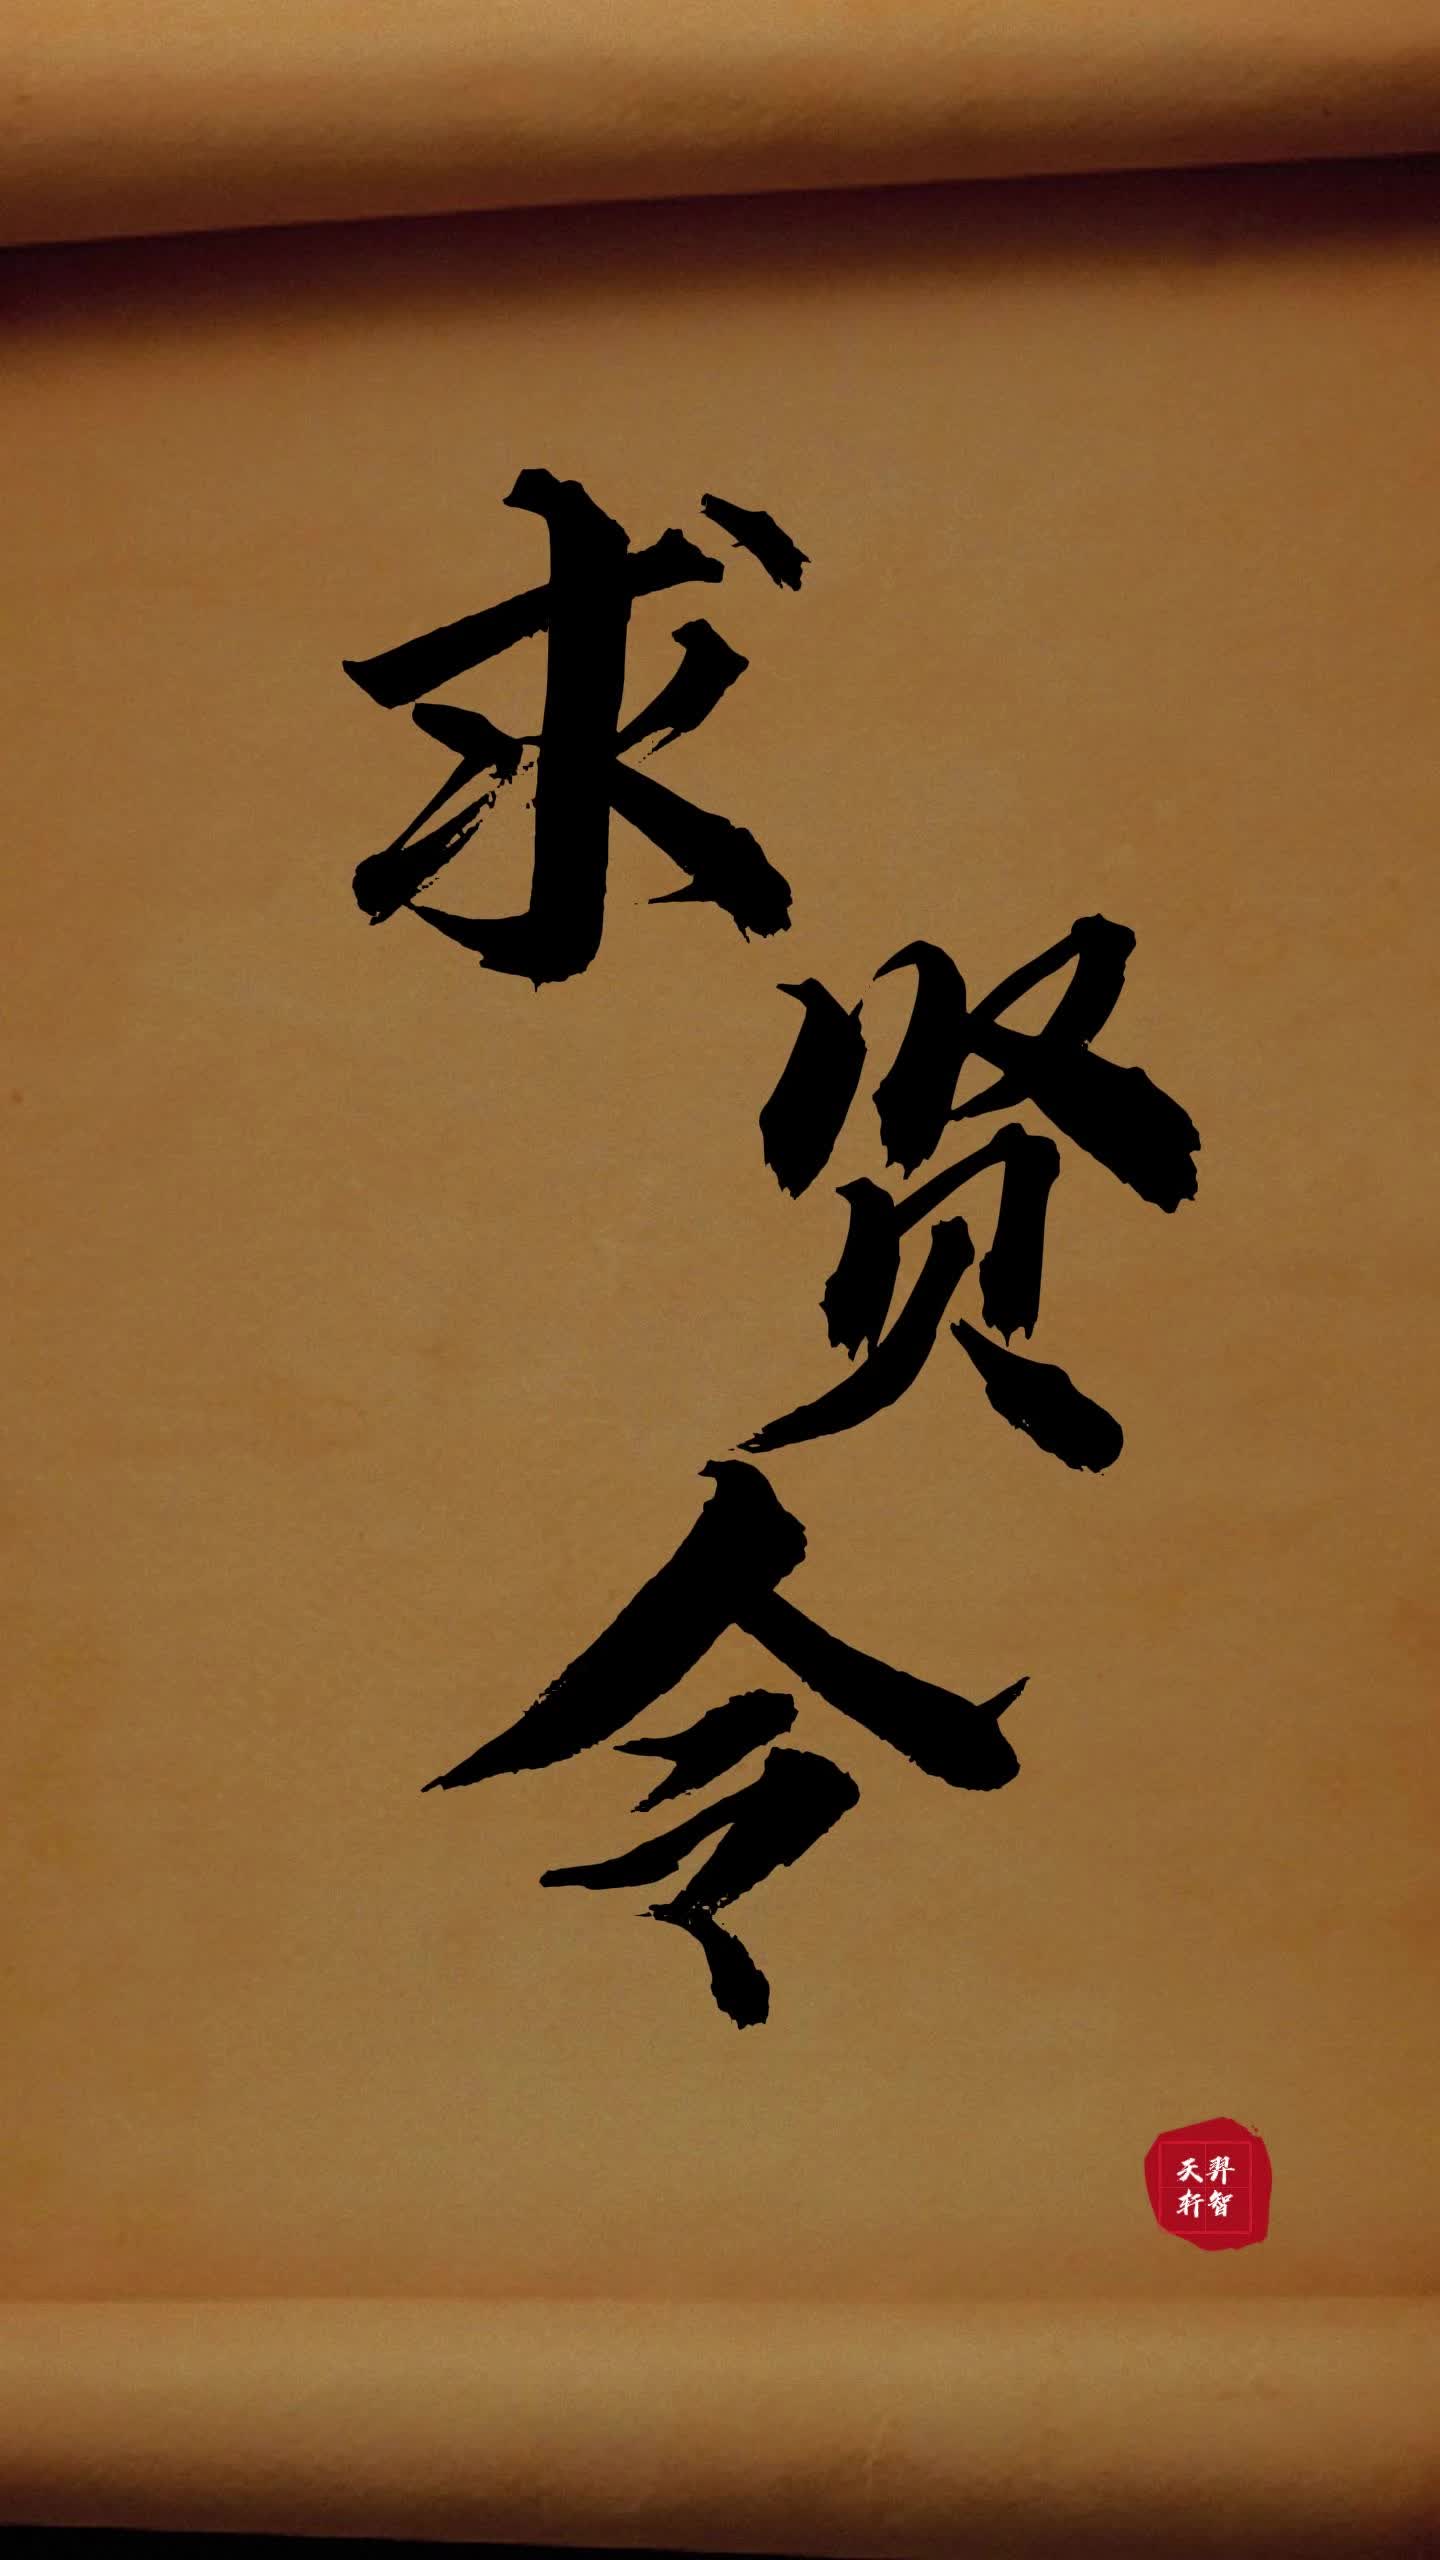 求
贤
令
天羿
轩智